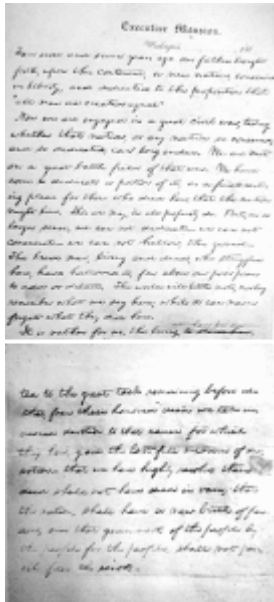 Executive Mansion,
Washington, , 186
Four score and seven years ago our fathers brought
forth, upon this continent, a new nation, conceived
in liberty, and dedicated to the proposition that
"all men are created equal"
Now we are engaged in a great civil war, testing
whether that nation, or any nation so conceived,
and so dedicated, can long endure. We are met
on a great battle field of that war. We have
come to dedicate a portion of it, as a final rest-
ing place for those who died here, that the nation
might live. This we may, in all propriety do. But, in a
larger sense, we can not dedicate we can not
consecrate we can not hallow, this ground
The brave men, living and dead, who struggled
here, have hallowed it, far above our poor power
to add or detract. The world will little note, nor long
remember what we say here; while it can never
forget what they did here.
It is rather for us, the living, to
ted to the great task remaining before us
that, from these honored dead we take in-
creased devotion to that cause for which
they here, gave the last full measure of de-
votion that we here highly resolve these
dead shall not have died in vain; that
the nation, shall have a new birth of free-
dom, and that government of the people by
the people for the people, shall not per-
ish from the earth.